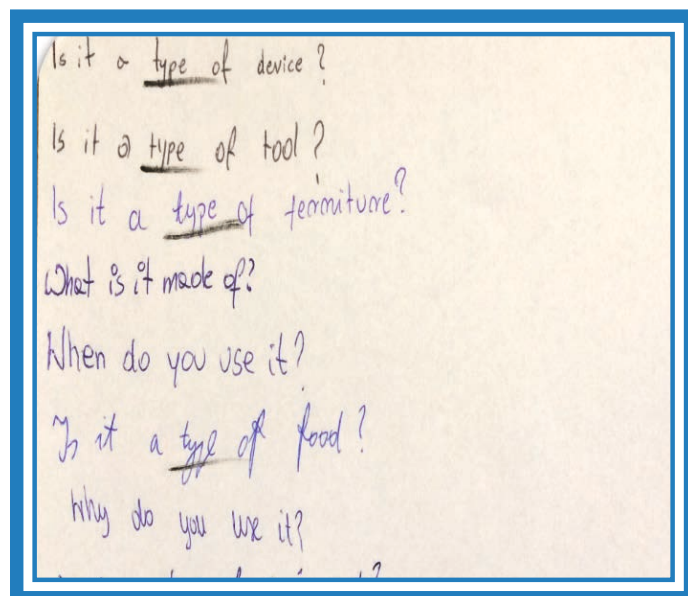 Is it a type of device?
Is it a type of tool?
Is it a type of fermiture?
What is it made of?
When do you use it?
Is it a type of food?
Why do you use it?